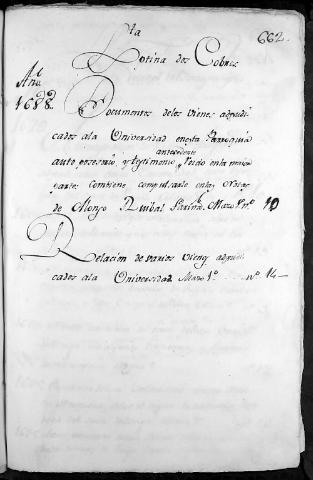 662.
Sta
Cotina de Cobres
Año
1688.
Documentos delos vienes adjudi
cados ala Universidad enesta Parroquia
antecedente
auto posesorio, y testimonio, Pedido enla maior
parte: combiene compulsarle enlas Notas
de Alonso Ruibal Mazo 1º nº. 10
Relacion de varios vienes adjudi
cados ala Universidad Mazo 1º. nº. 14